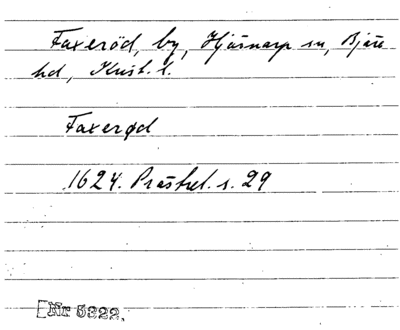 Faxeröd, by, Hjärnarp sn, Bjäre
hd, Krist. l.
Faxerød
1624. Prästrel. s. 29
Nr 5322.